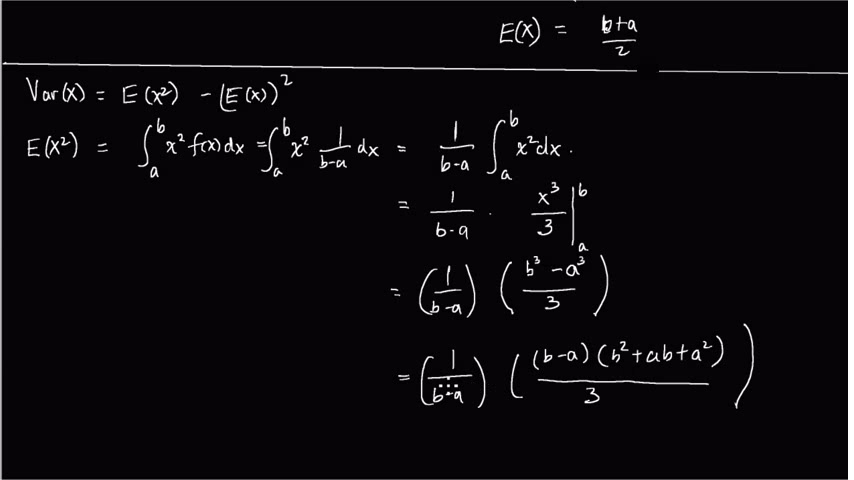 E(X) = b+a/2
Var(x) = E(x²) - (E(x))²
E(X²) = ∫_a^b x² f(x) dx = ∫_a^b x² 1/(b-a) dx = 1/(b-a) ∫_a^b x² dx.
= 1/(b-a) · x³/3 |_a^b
= (1/(b-a)) ((b³ - a³)/3)
= (1/(b-a)) ((b-a)(b²+ab+a²)/3)